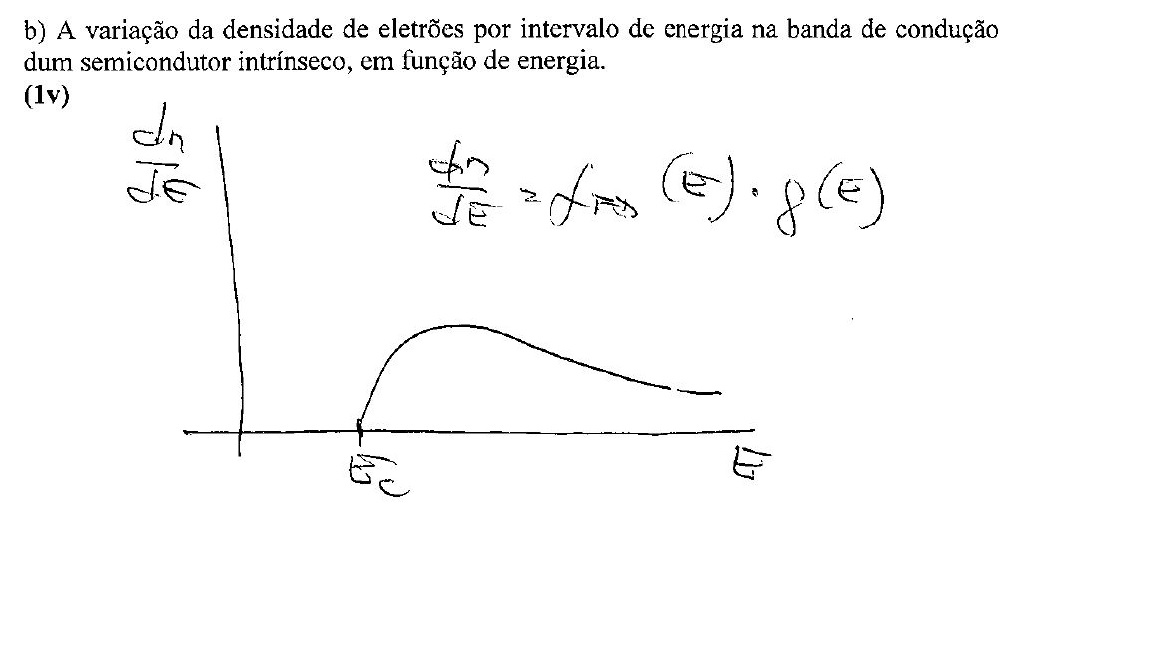 b) A variação da densidade de eletrões por intervalo de energia na banda de condução
dum semicondutor intrínseco, em função de energia.
(1v)
dn
dE
dn/dE = f_FD (E) · g(E)
E_c
E